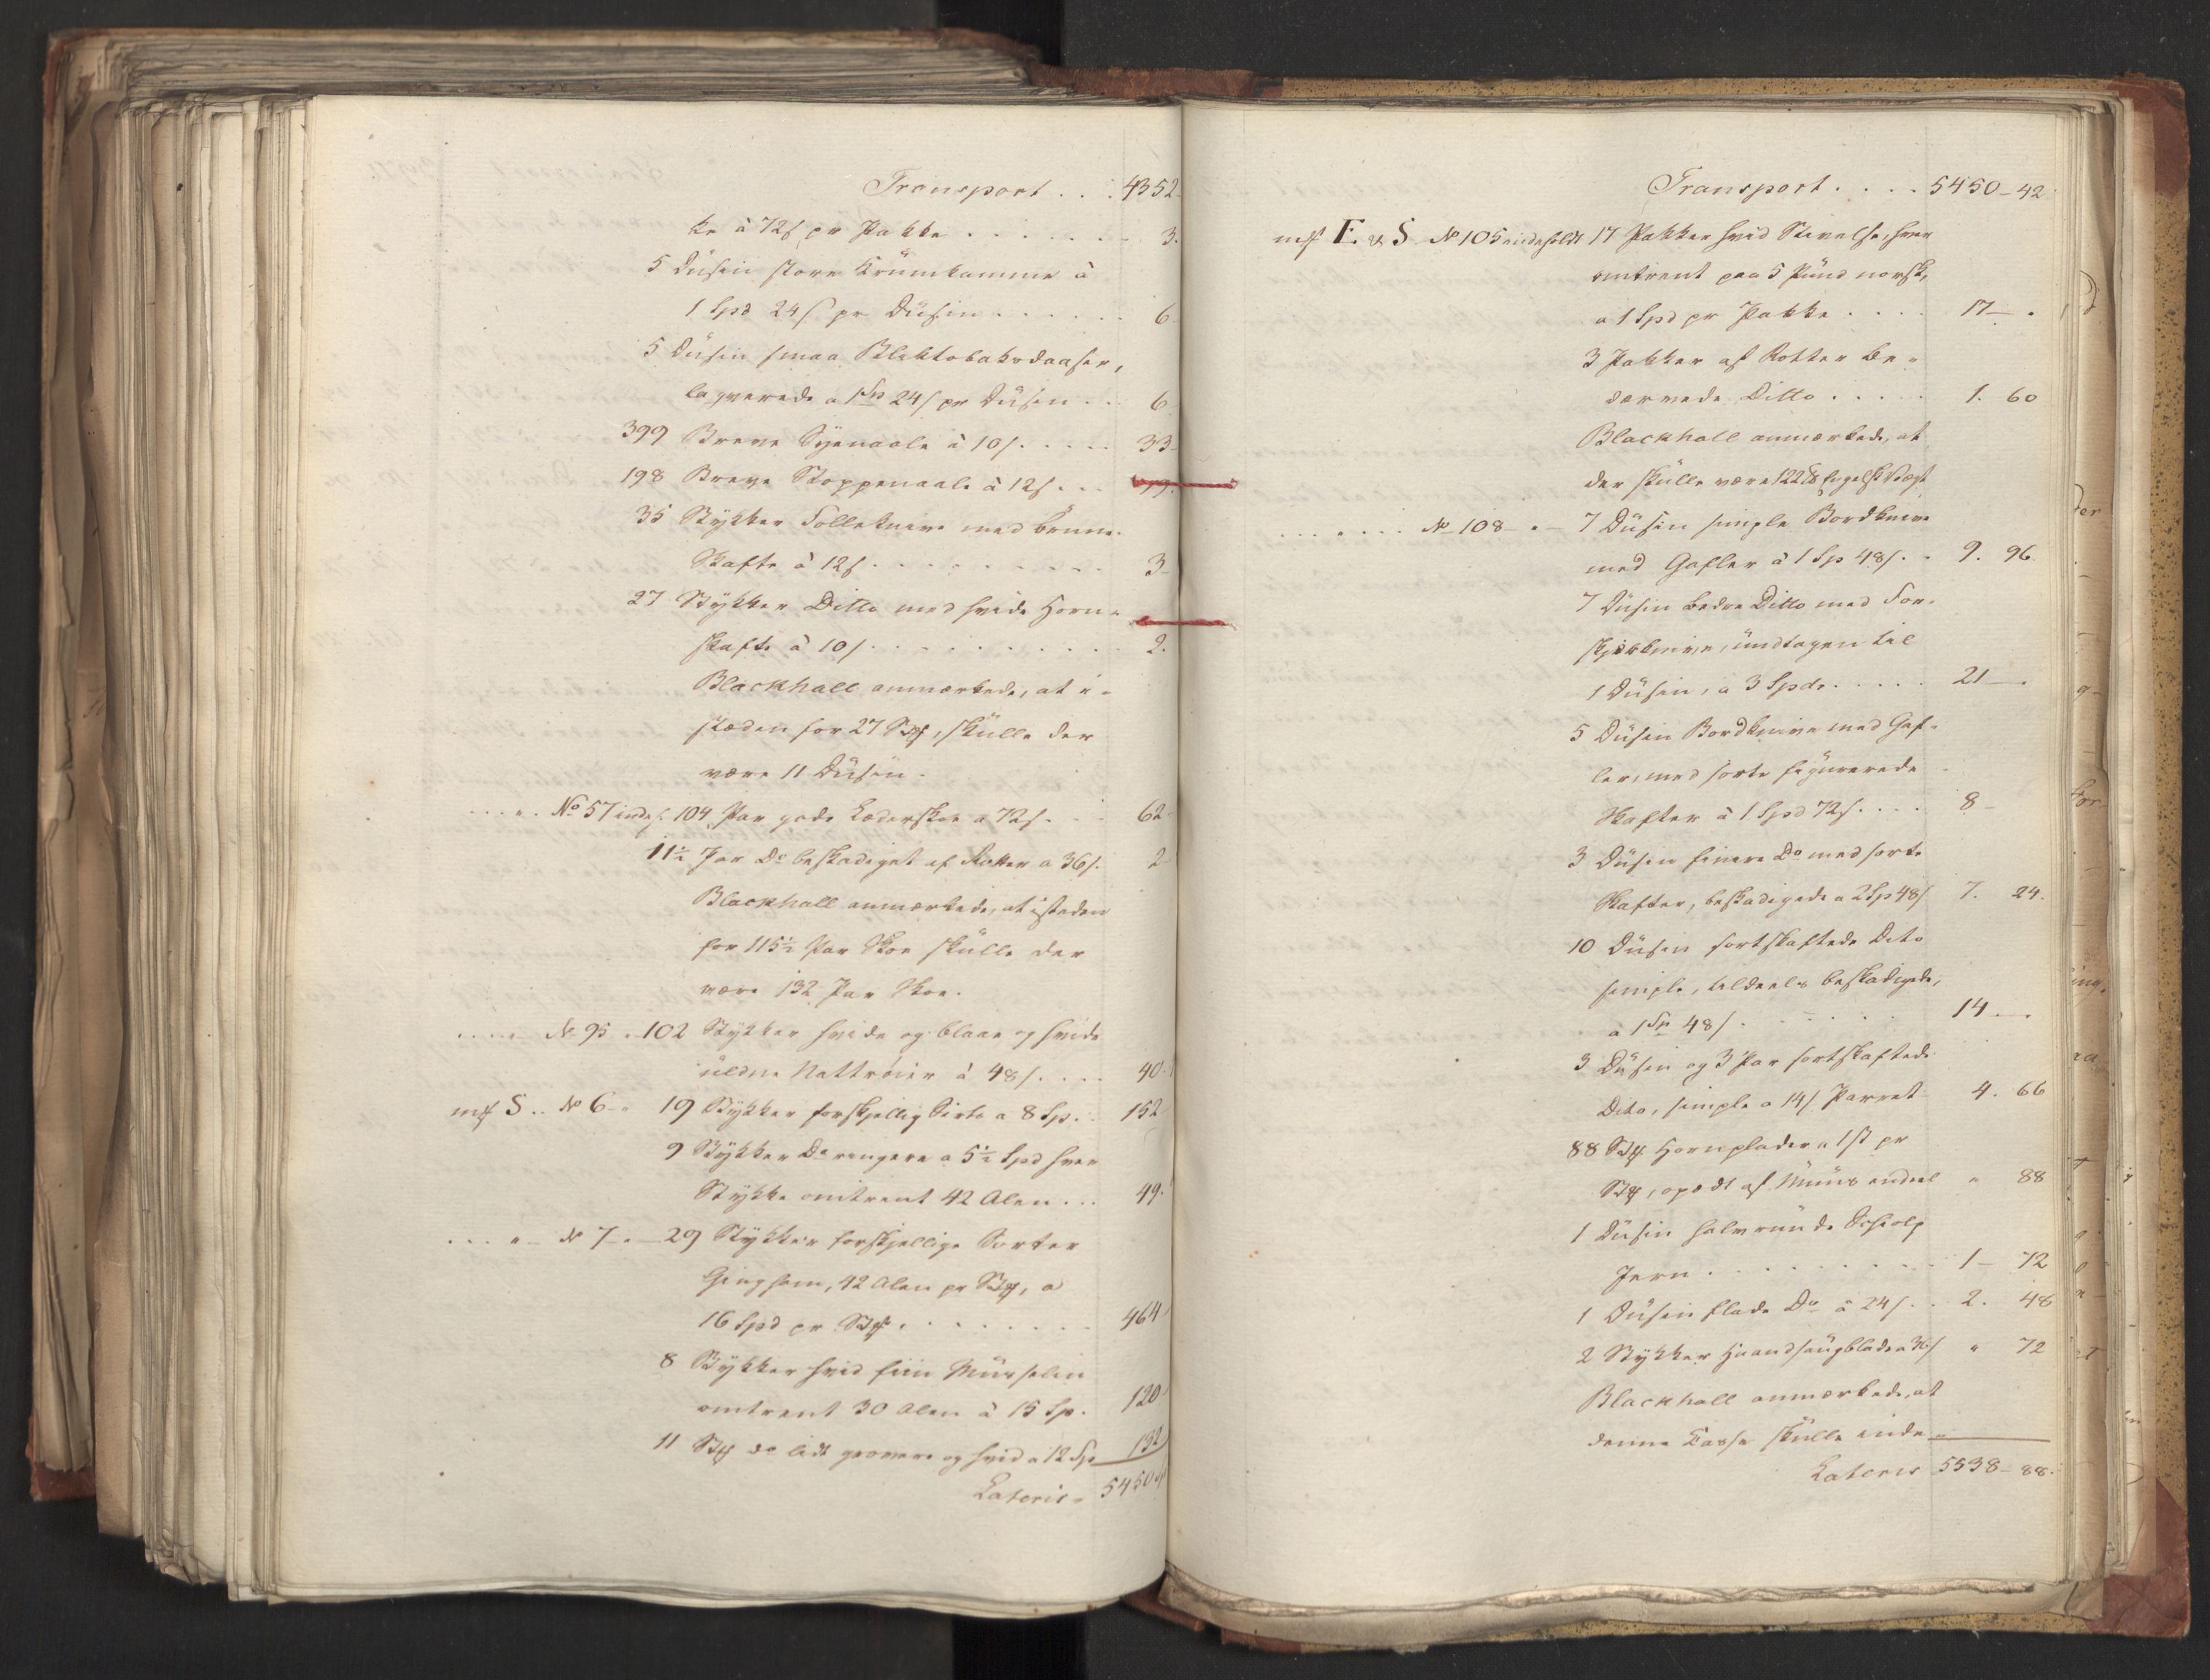 Transport . . . 4352
ke à 72ß pr Pakke . . . . . . 3.
5 Dusin store Krumkamme à
1 Spd 24ß pr Dusin . . . . . . 6
5 Dusin smaa Bliktobaksdaaser,
laqverede a 1 Sp 24ß pr Dusin . . 6
399 Breve Syenaale à 10ß . . . . . 33
198 Breve Stoppenaale à 12ß . . .
35 Stykker Folleknive med brune
Skafte à 12ß . . . . . . . . . 3
27 Stykker Ditto med hvide Horn-
skafte à 10ß . . . . . . . . . 2.
Blackhall anmærkede, at i-
stæden for 27 Stk, skulle der
være 11 Dusin.
. . . " . No 57 indeh. 104 Par gode Læderskoe a 72ß . . . 62
11½ Par Do beskadiget af Rotter a 36ß. 2
Blackhall anmærkede, at isteden
for 115½ Par Skoe skulle der
være 132 Par Skoe.
. . . . No 95 . 102 Stykker hvide og blaae og hvide
uldne Nattrøier à 48ß . . . . 40.
mk S . . No 6 - " 19 Stykker forskjellig Sirts a 8 Sp. . 152
9 Stykker Do ringere a 5½ Spd hver
Stykke omtrent 42 Alen . . . 49.
. . . " - No 7 . " 29 Stykker forskjellige Sorter
Gingham, 42 Alen pr Stk, a
16 Spd pr Stk . . . . . . . . 464
8 Stykker hvid fiin Musselin
omtrent 30 Alen à 15 Sp. 120
11 Stk do lidt grovere og hvid a 12 Sp 132
Lateris - 5450
Transport . . . . 5450 - 42
mk E & S No 105 indeholdt 17 Pakker hvid Stivelse, hver
omtrent paa 5 Pund norsk,
a 1 Spd pr Pakke . . . . 17 - "
3 Pakker af Rotter be-
dærvede Ditto . . . . . 1. 60
Blackhall anmærkede, at
der skulle være 122 ℔ Engelsk Vægt
. . . " . . . No 108 - " - 7 Dusin simple Bordknive
med Gafler à 1 Sp 48ß . . 9. 96
7 Dusin bedre Ditto med For-
skjærknive, undtagen til
1 Dusin, a 3 Spd . . . . . 21 - "
5 Dusin Bordknive med Gaf-
ler, med sorte figurerede
Skafter à 1 Spd 72ß . . . . 8 -
3 Dusin finere Do med sorte
Skafter, beskadigede a 2 Sp 48ß 7. 24.
10 Dusin sortskaftede Dito
simple, tildeels beskadigede,
a 1 Sp 48ß . . . . . . 14 - "
3 Dusin og 3 Par sortskaftede
Dito, simple a 14ß Parret 4. 66
88 Stk Hornplader a 1ß pr
Stk, opædt af Muus endeel " 88
1 Dusin halvrunde
Jern . . . . . . . . . 1 - 72
1 Dusin flade Do à 24ß . . 2. 48
2 Stykker Haandsaugblade a 36ß " 72
Blackhall anmærkede, at
denne Kasse skulle inde-
Lateris 5538 - 88.